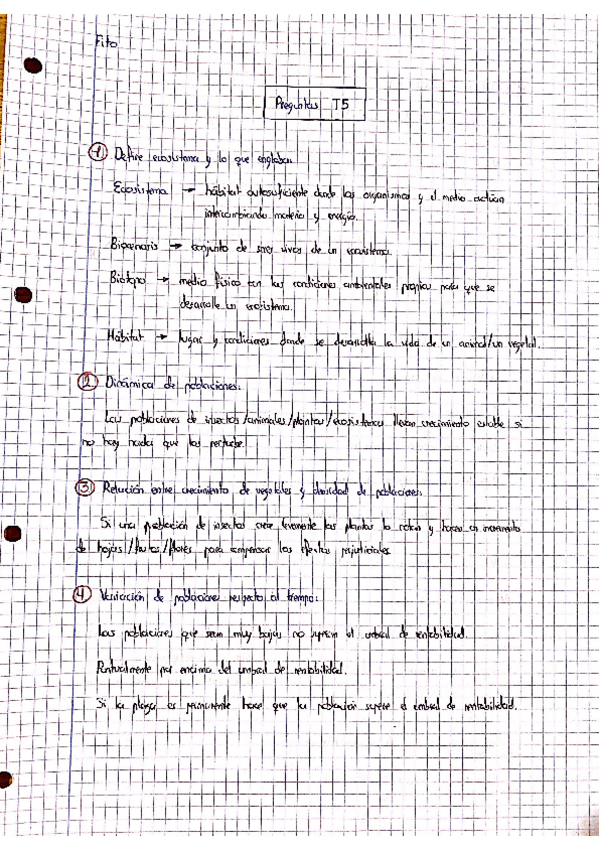 Fito
Preguntas T5
1 Define ecosistema y lo que engloba:
Ecosistema → hábitat autosuficiente donde los organismos y el medio actúan
intercambiando materia y energía.
Biocenosis → conjunto de seres vivos de un ecosistema.
Biótopo → medio físico con las condiciones ambientales propias para que se
desarrolle un ecosistema.
Hábitat → lugar y condiciones donde se desarrolla la vida de un animal/un vegetal.
2 Dinámica de poblaciones:
Las poblaciones de insectos/animales/plantas/ecosistemas llevan crecimiento estable si
no hay nada que las perturbe.
3 Relación entre crecimiento de vegetales y densidad de poblaciones:
Si una población de insectos crece levemente las plantas lo notan y hacen un incremento
de hojas/frutos/flores para compensar los efectos perjudiciales.
4 Variación de poblaciones respecto al tiempo:
Las poblaciones que sean muy bajas no superan el umbral de rentabilidad.
Puntualmente por encima del umbral de rentabilidad.
Si la plaga es permanente hace que la población supere el umbral de rentabilidad.